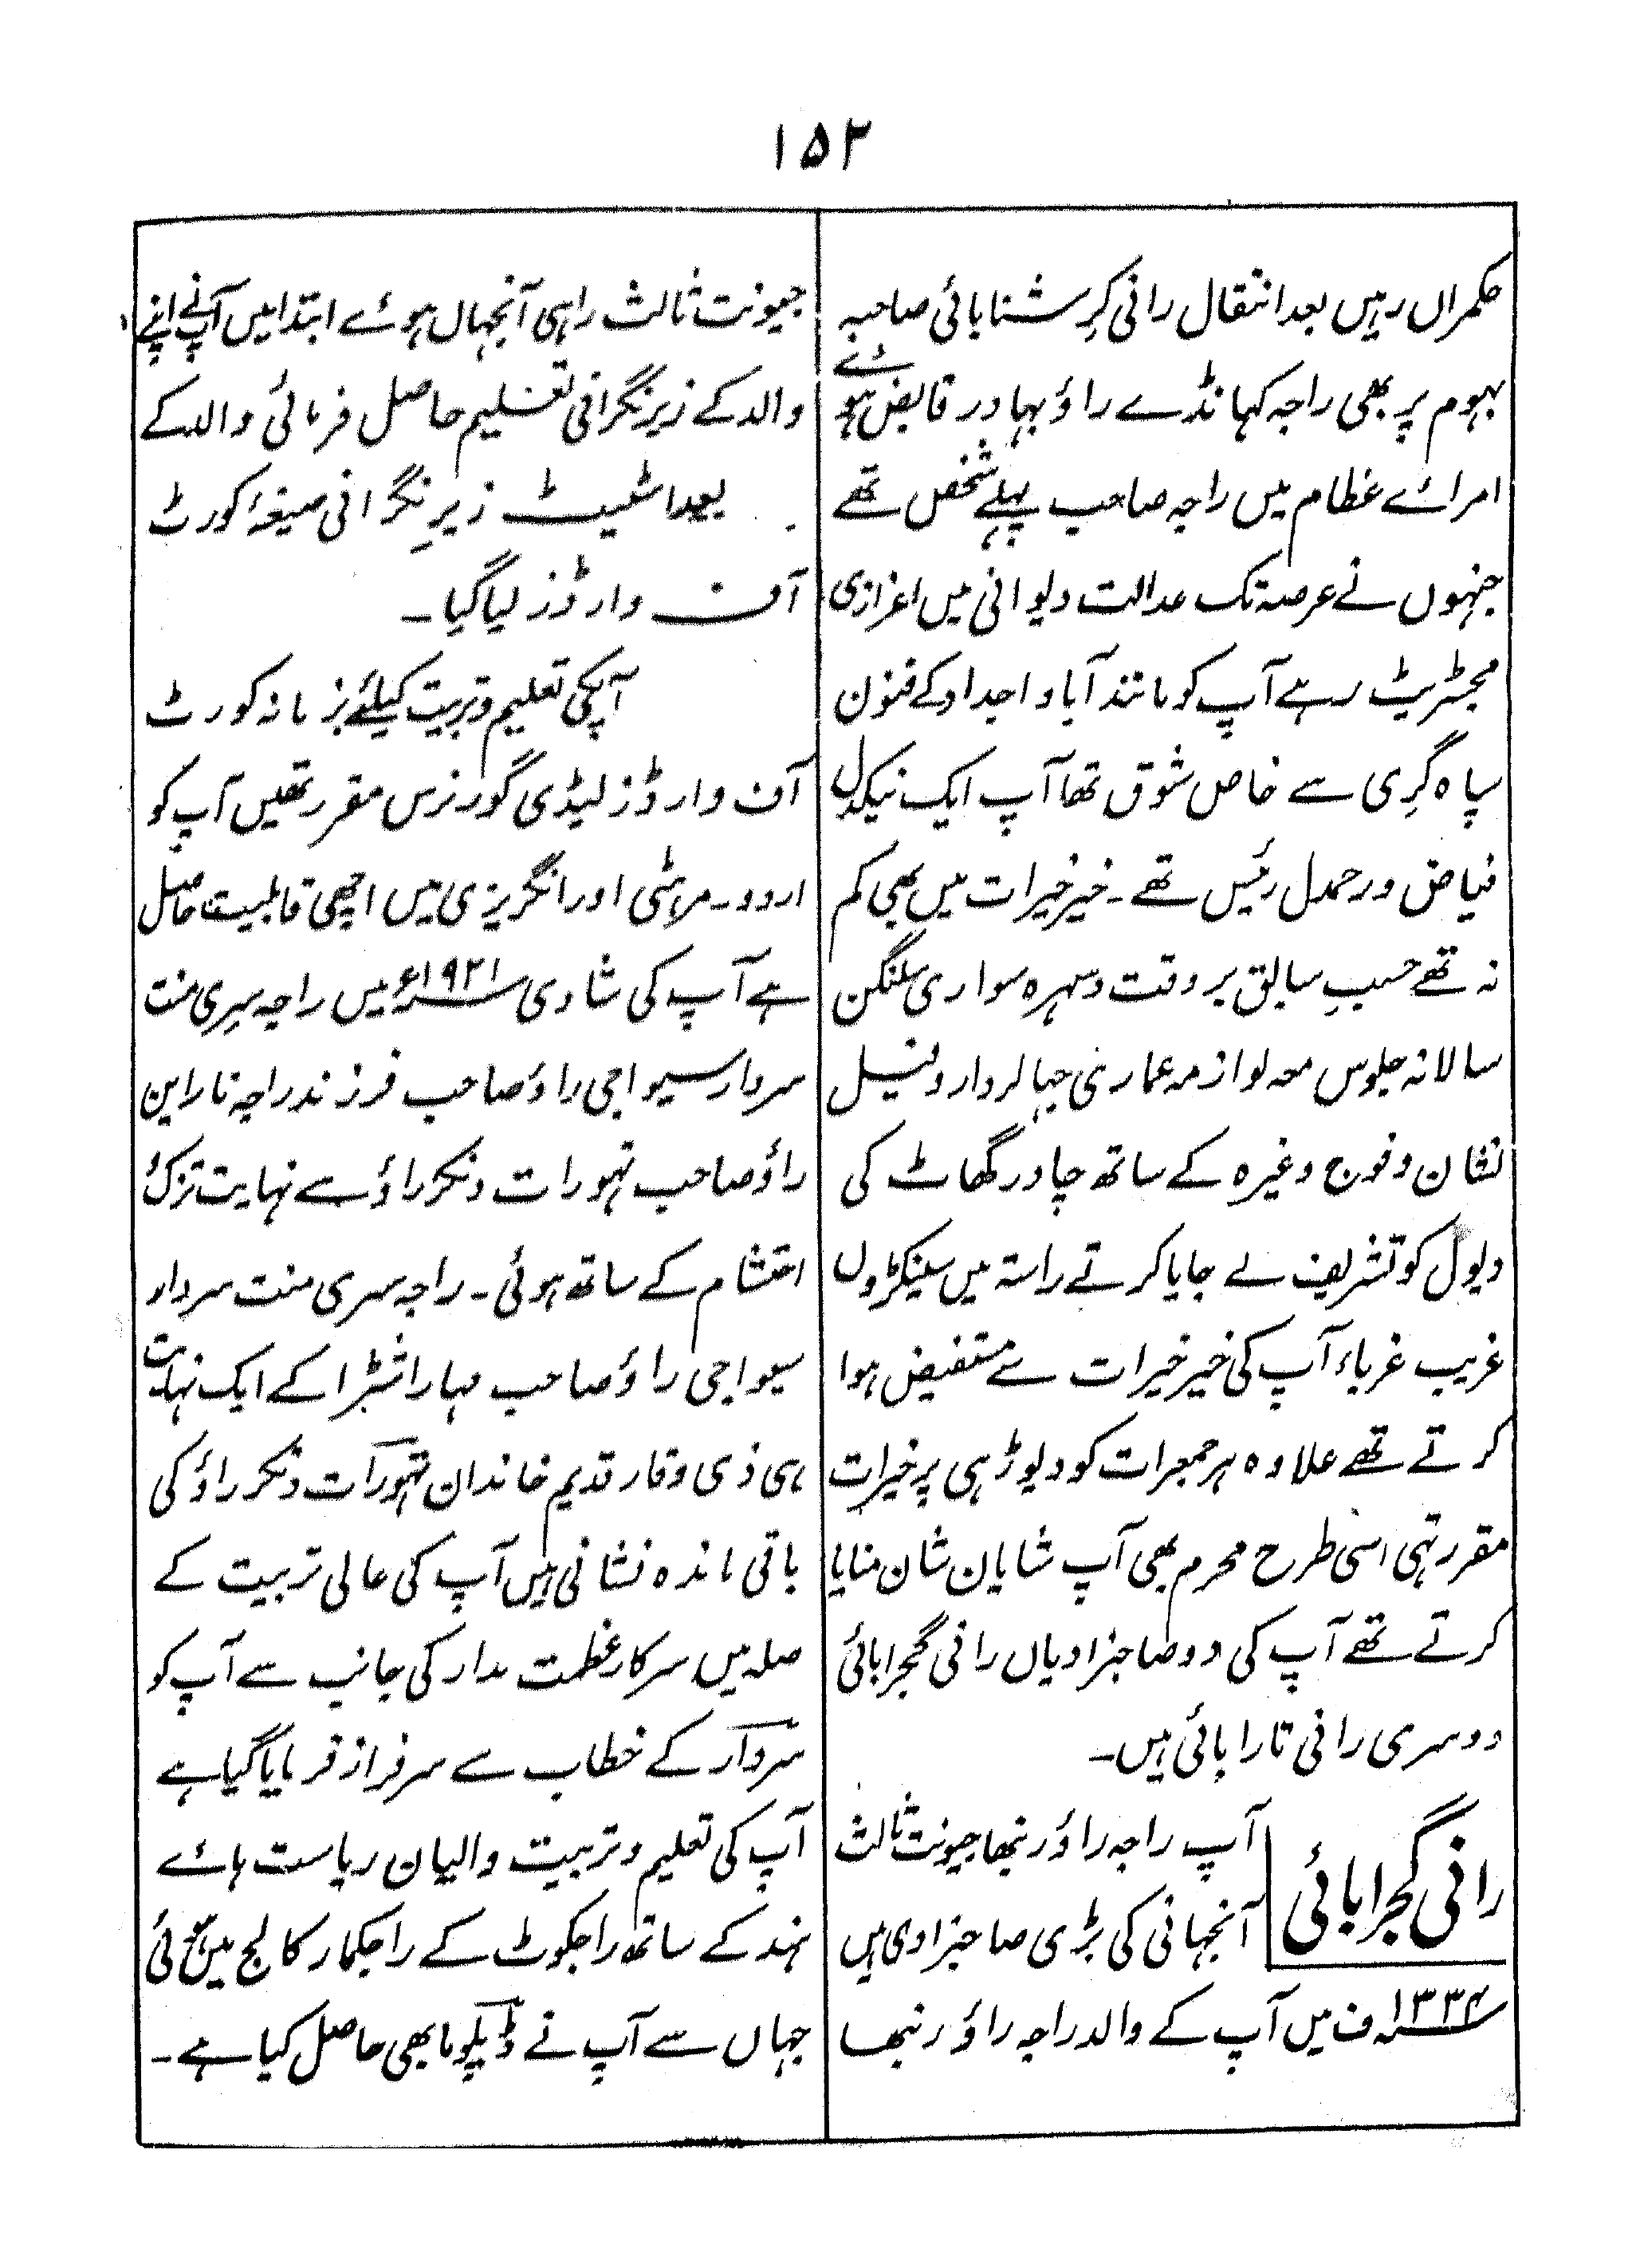 ۱۵۲
حکمراں رہیں بعد انتقال رانی کرِشنا بائی صاحبہ
بہوم پر بھی راجہ کہانڈے راؤ بہادر قابض ہوئے
امرائے عظام میں راجہ صاحب پہلے شخص تھے
جنہوں نے عرصہ تک عدالت دیوانی میں اعزازی
مجسٹریٹ رہے آپ کو مانند آبا و اجداد کے فنون
سپاہ گرِی سے خاص شوق تھا آپ ایک نیکدل
فیاض و رحمدل رئیس تھے ۔ خیر خیرات میں بھی کم
نہ تھے حسبِ سابق بر وقت دسہرہ سواری سلنگن
سالانہ جلوس معہ لوازمہ عماری جہالردار و فیل
نشان و فوج وغیرہ کے ساتھ چادر گھاٹ کی
دیول کو تشریف لے جایا کرتے راستہ میں سینکڑوں
غریب غرباء آپ کی خیر خیرات سے مستفیض ہوا
کرتے تھے علاوہ ہر جمعرات کو دیوڑہی پر خیرات
مقرر تہی اسی طرح محرم بھی آپ شایان شان منایا
کرتے تھے آپ کی دو صاحبزادیاں رانی گجرابائی
دوسری رانی تارا بائی ہیں ۔
رانی گجرابائی
آپ راجہ راؤ رنبھا جیونت ثالث
آنجہانی کی بڑی صاحبزادی ہیں
۱۳۳۴ سنہ ف میں آپ کے والد راجہ راؤ رنبھا
جیونت ثالث راہی آنجہاں ہوئے ابتدا میں آپنے اپنے
والد کے زیر نگرانی تعلیم حاصل فرمائی والد کے
بعد اسٹیٹ زیرِ نگرانی صیغۂ کورٹ
آف وارڈز لیا گیا ۔
آپکی تعلیم و تربیت کیلئے بزمانہ کورٹ
آف وارڈز لیڈی گورنرس مقرر تھیں آپ کو
اردو ۔ مرہٹی اور انگریزی میں اچھی قابلیت حاصل
ہے آپ کی شادی سنہ ۱۹۲۱ء میں راجہ سرِی منت
سردار سیواجی راؤ صاحب فرزند راجہ ناراین
راؤ صاحب تہورات دنکر راؤ سے نہایت تزک و
احتشام کے ساتھ ہوئی ۔ راجہ سری منت سردار
سیواجی راؤ صاحب مہاراشٹرا کے ایک نہایت
ہی ذی وقار قدیم خاندان تہورات دنکر راؤ کی
باقی ماندہ نشانی ہیں آپ کی عالی تربیت کے
صلہ میں سرکار عظمت مدار کی جانب سے آپ کو
سردار کے خطاب سے سرفراز فرمایا گیا ہے
آپ کی تعلیم و تربیت والیان ریاست ہائے
ہند کے ساتھ راجکوٹ کے راجکمار کالج میں ہوئی
جہاں سے آپ نے ڈپلوما بھی حاصل کیا ہے ۔